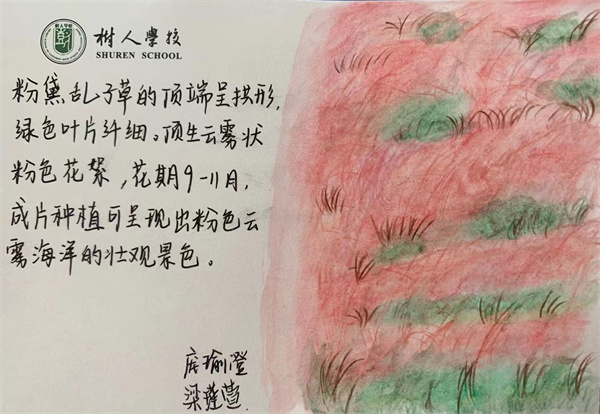 树人學校
SHUREN SCHOOL
粉黛乱子草的顶端呈拱形,
绿色叶片纤细。顶生云雾状
粉色花絮,花期9-11月,
成片种植可呈现出粉色云
雾海洋的壮观景色。